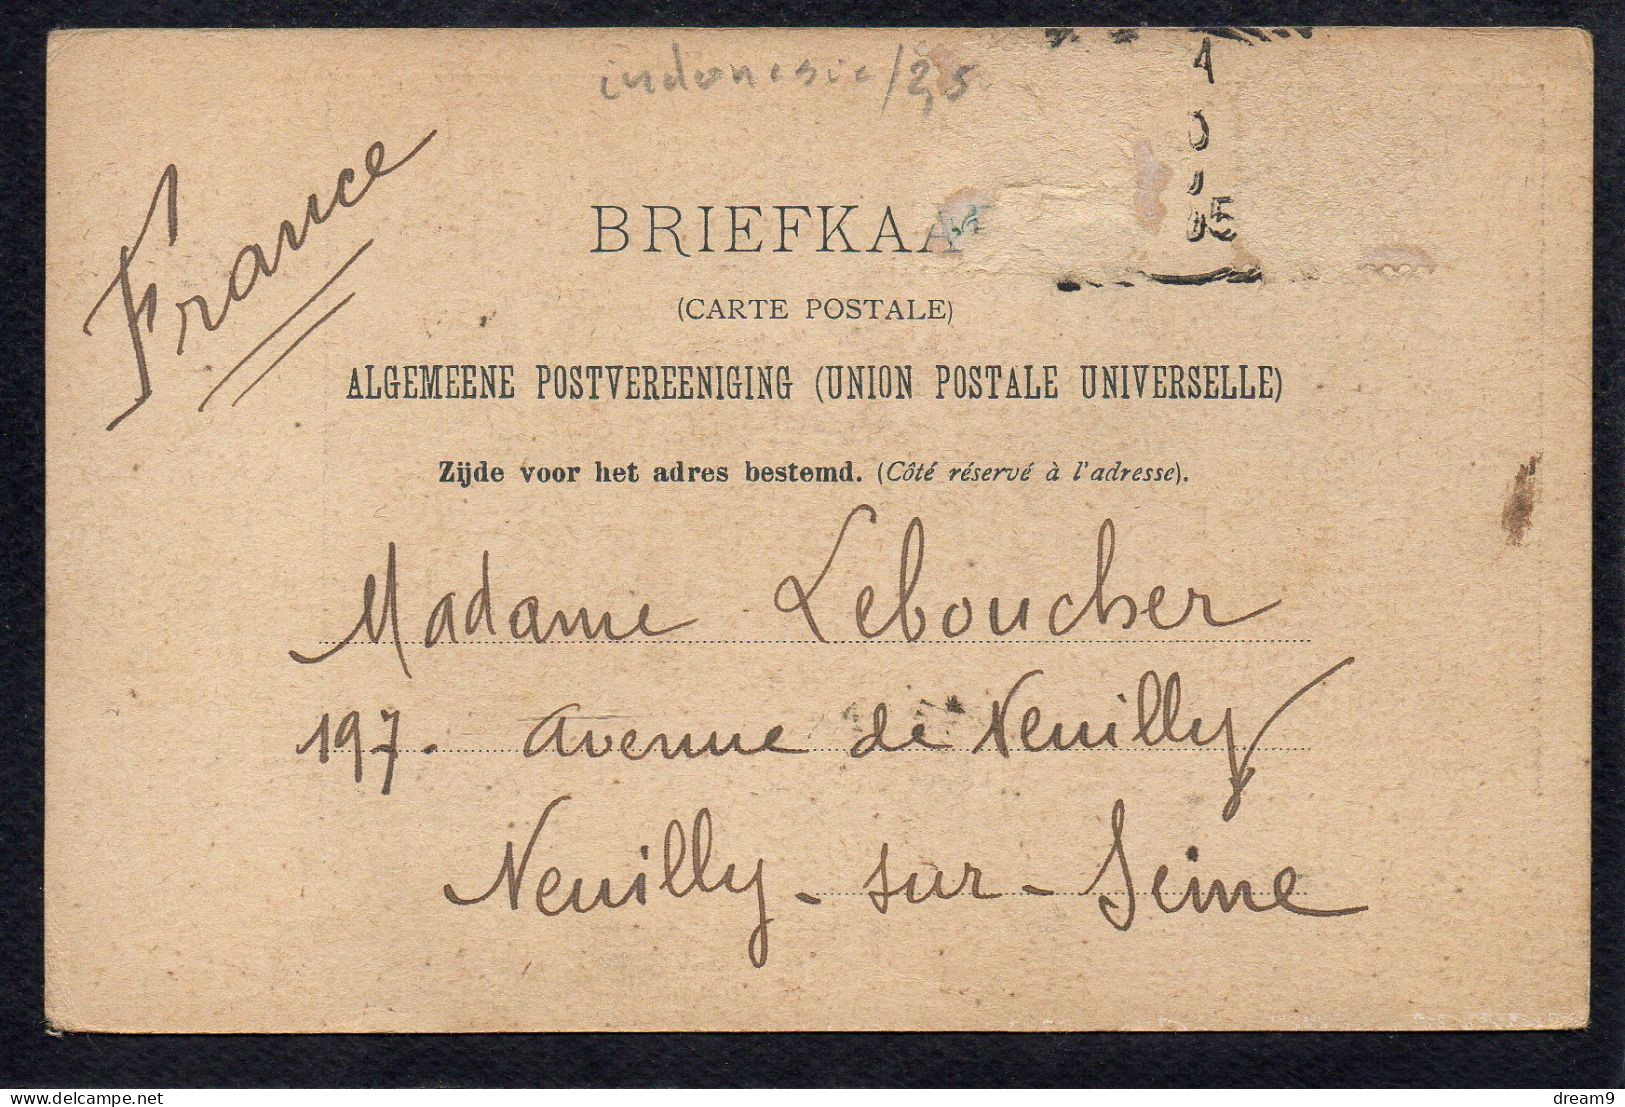 indonesie/2,5
France
BRIEFKAA
(CARTE POSTALE)
ALGEMEENE POSTVEREENIGING (UNION POSTALE UNIVERSELLE)
Zijde voor het adres bestemd. (Côté réservé à l'adresse).
Madame Leboucher
197. avenue de Neuilly
Neuilly-sur-Seine
delcampe.net
dream9